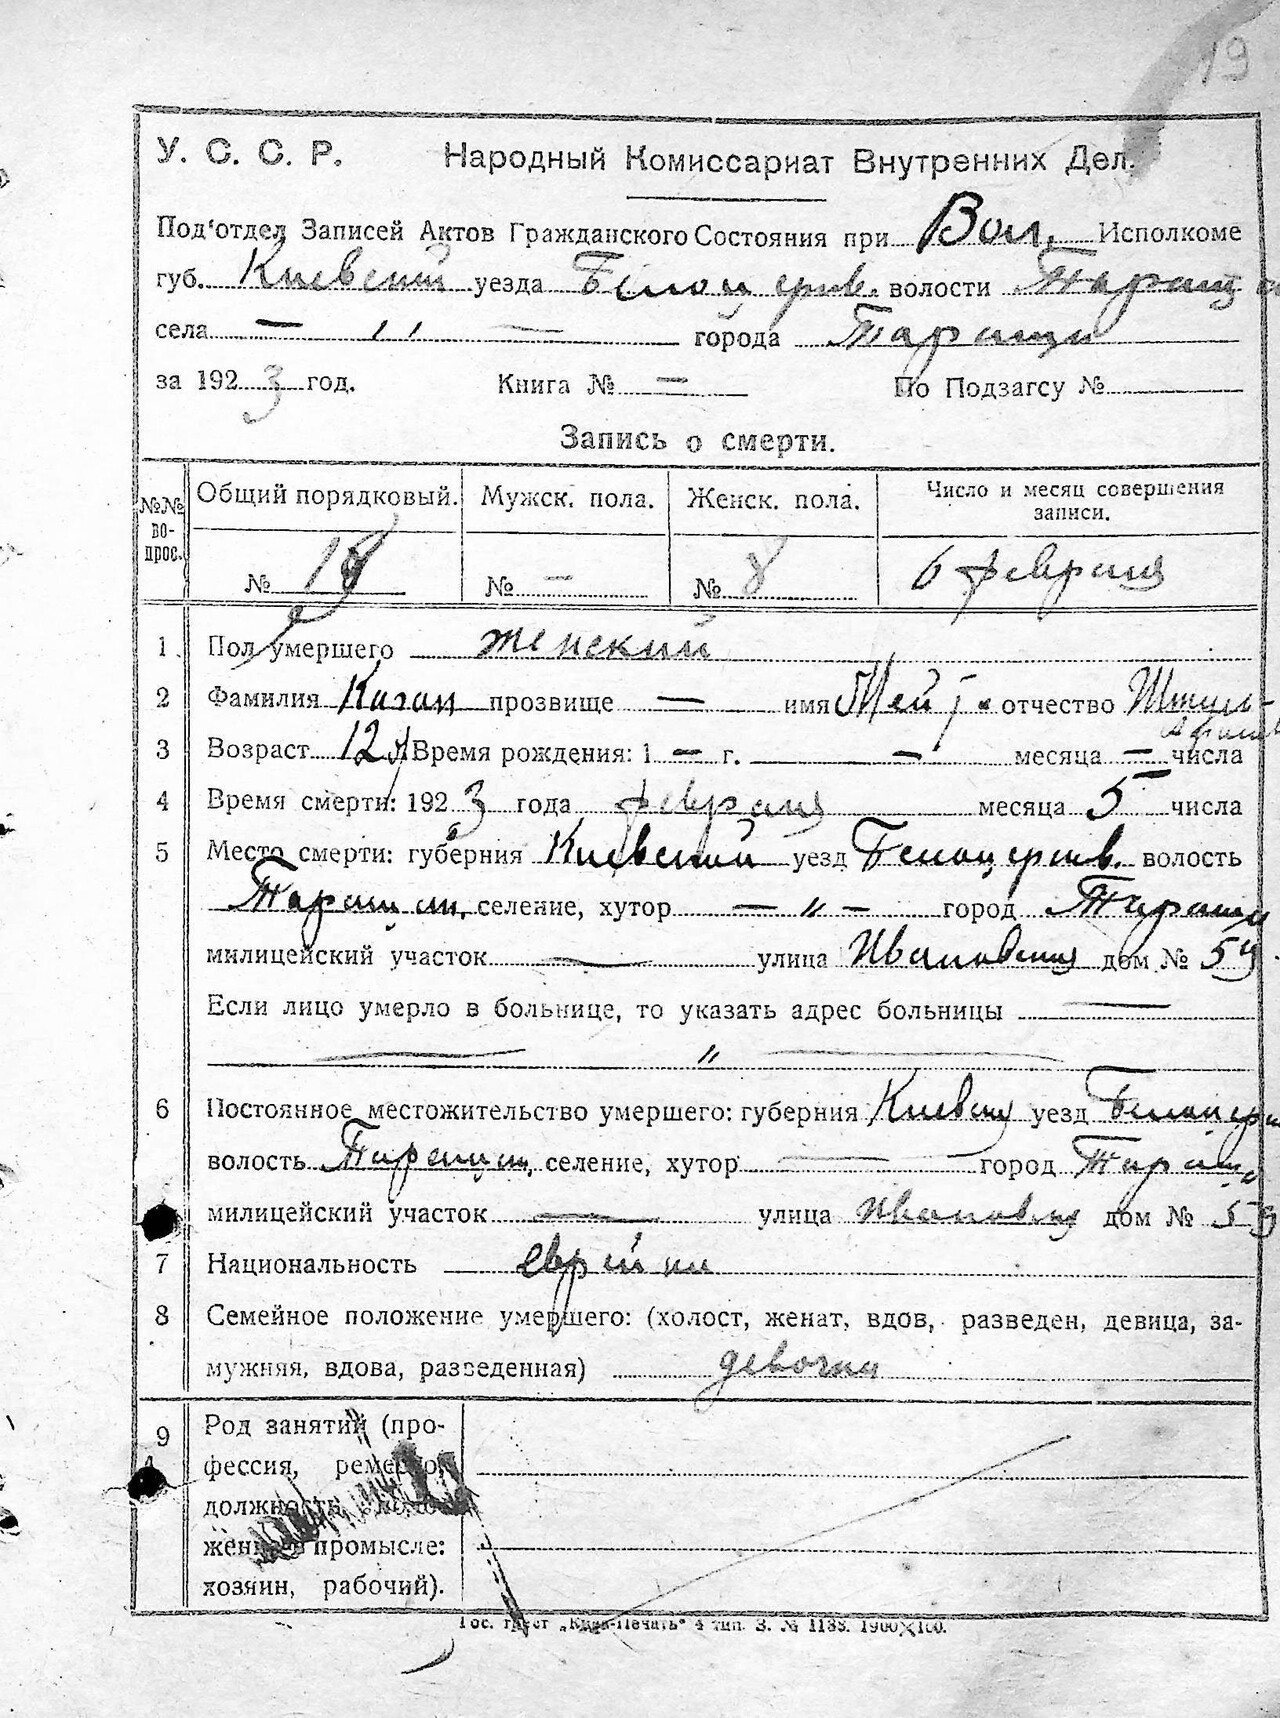 19
У. С. С. Р. Народный Комиссариат Внутренних Дел.
Под'отдел Записей Актов Гражданского Состояния при Вол. Исполкоме
губ. Киевской уезда Белоцерков. волости Таращ
села — " — города Таращи
за 1923 год. Книга № — По Подзагсу №
Запись о смерти.
№№ во- прос. Общий порядковый. Мужск. пола. Женск. пола. Число и месяц совершения записи.
№ № — № 8 6 февраля
1 Пол умершего женский
2 Фамилия Каган прозвище — имя отчество
3 Возраст 12 Время рождения: 1 — г. — месяца — числа
4 Время смерти: 1923 года февраля месяца 5 числа
5 Место смерти: губерния Киевской уезд Белоцерков. волость
Таращан. селение, хутор — " — город Тараща
милицейский участок — улица Ивановская дом № 59
Если лицо умерло в больнице, то указать адрес больницы —
— " —
6 Постоянное местожительство умершего: губерния Киевская уезд Белоцерк
волость Таращан. селение, хутор — город Тараща
милицейский участок — улица Ивановская дом № 59
7 Национальность еврейка
8 Семейное положение умершего: (холост, женат, вдов, разведен, девица, за-
мужняя, вдова, разведенная) девочка
9 Род занятий (про-
фессия, ремесло,
должность, поло-
жение в промысле:
хозяин, рабочий).
Гос. трест „Киев-Печать“ 4 тип. З. № 1135. 1900×100.